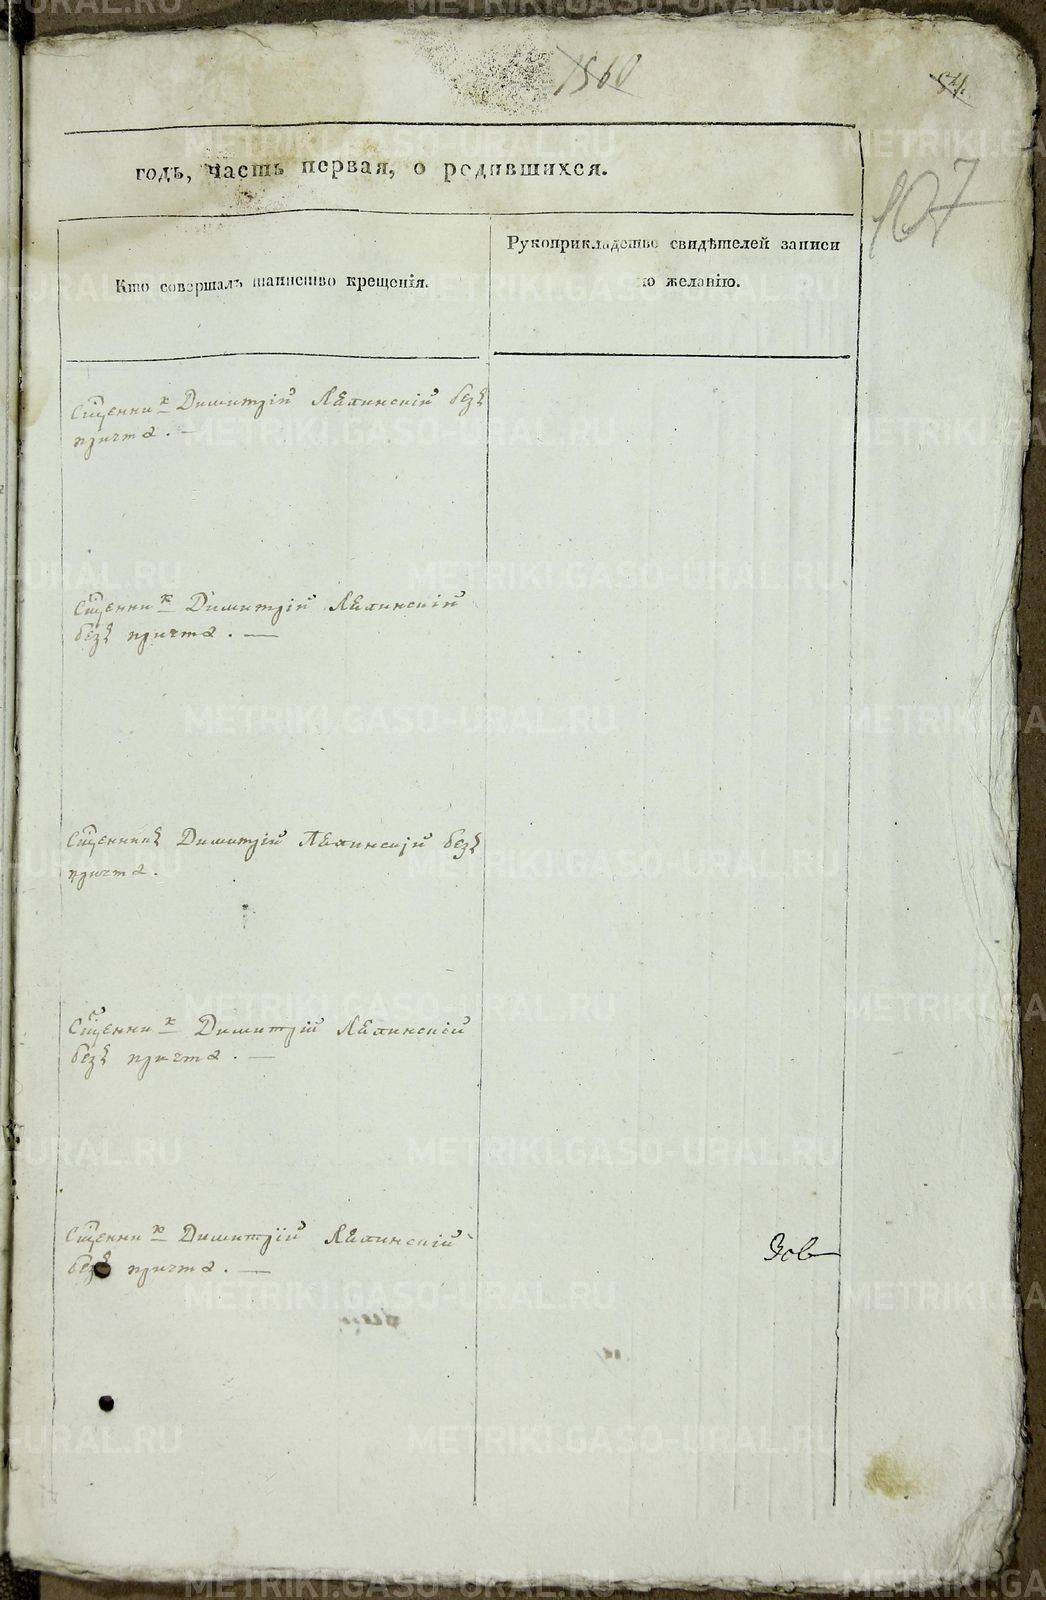 1560
84.
107
годъ, часть первая, о родившихся.
Кто совершалъ таинство крещенія.
Рукоприкладство свидѣтелей записи
по желанію.
Сщенникъ Димитрій Лѣпинскій безъ
причта. —
Сщенникъ Димитрій Лѣпинскій
безъ причта. —
Сщенникъ Димитрій Лѣпинскій безъ
причта.
Сщенникъ Димитрій Лѣпинскій
безъ причта. —
Сщенникъ Димитрій Лѣпинскій
безъ причта. —
METRIKI.GASO-URAL.RU